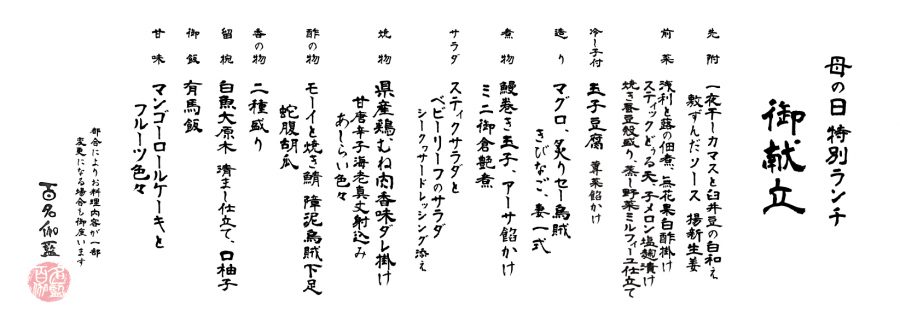 母の日特別ランチ
御献立
先附 一夜干しカマスと臼井豆の白和え
敷ずんだソース 揚新生姜
前菜 浅利と蕗の佃煮、無花果白酢掛け
スティックどぅる天、子メロン塩麹漬け
焼き蚕豆殻盛り、蒸し野菜ミルフィーユ仕立て
冷し子付 玉子豆腐 蓴菜餡かけ
造り マグロ、炙りセー烏賊
きびなご、妻一式
煮物 鰻巻き玉子、アーサ餡かけ
ミニ御倉艶煮
サラダ スティクサラダと
ベビーリーフのサラダ
シークヮサードレッシング添え
焼物 県産鶏むね肉香味ダレ掛け
甘唐辛子海老真丈射込み
あしらい色々
酢の物 モーイと焼き鯖 障泥烏賊下足
蛇腹胡瓜
香の物 二種盛り
留椀 白魚大原木 清まし仕立て、口柚子
御飯 有馬飯
甘味 マンゴーロールケーキと
フルーツ色々
都合によりお料理内容が一部
変更になる場合も御座います
百名伽藍